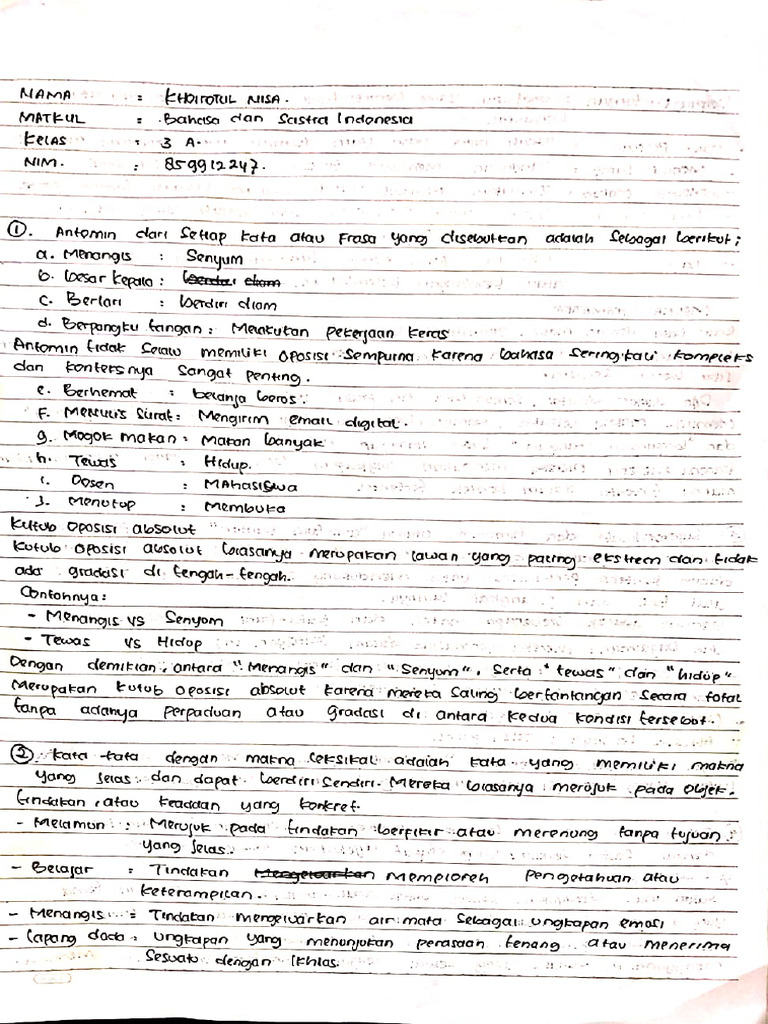 NAMA : KHOIROTUL NISA.
MATKUL : Bahasa dan Sastra Indonesia
Kelas : 3 A.
NIM. : 859912247.
①. Antomin dari Setiap kata atau Frasa yang disebutkan adalah Sebagai berikut;
a. Menangis : Senyum
b. besar kepala :
c. Berlari : berdiri diam
d. Berpangku tangan : Melakukan pekerjaan keras
Antomin tidak selalu memiliki oposisi sempurna karena bahasa seringkali kompleks
dan konteksnya sangat penting.
e. Berhemat : belanja boros.
f. Menulis Surat : Mengirim email digital.
g. Mogok makan : Makan banyak
h. Tewas : Hidup.
i. Dosen : Mahasiswa
j. Menutup : Membuka
Kutub oposisi absolut
Kutub oposisi absolut biasanya merupakan lawan yang paling ekstrem dan tidak
ada gradasi di tengah-tengah.
Contohnya :
- Menangis vs Senyum
- Tewas vs Hidup
Dengan demikian, antara "Menangis" dan "Senyum", Serta "tewas" dan "hidup"
Merupakan kutub oposisi absolut karena mereka saling bertantangan secara total
tanpa adanya perpaduan atau gradasi di antara kedua kondisi tersebut.
②. Kata-kata dengan makna leksikal adalah kata yang memiliki makna
yang jelas dan dapat berdiri sendiri. Mereka biasanya merujuk pada objek.
tindakan, atau keadaan yang konkret.
- Melamun : Merujuk pada tindakan berfikir atau merenung tanpa tujuan
yang jelas.
- Belajar : Tindakan Mengeluarkan memploreh pengetahuan atau
keterampilan.
- Menangis : Tindakan mengeluarkan air mata sebagai ungkapan emosi
- lapang dada : ungkapan yang menunjukan perasaan tenang atau menerima
Sesuatu dengan Ikhlas.